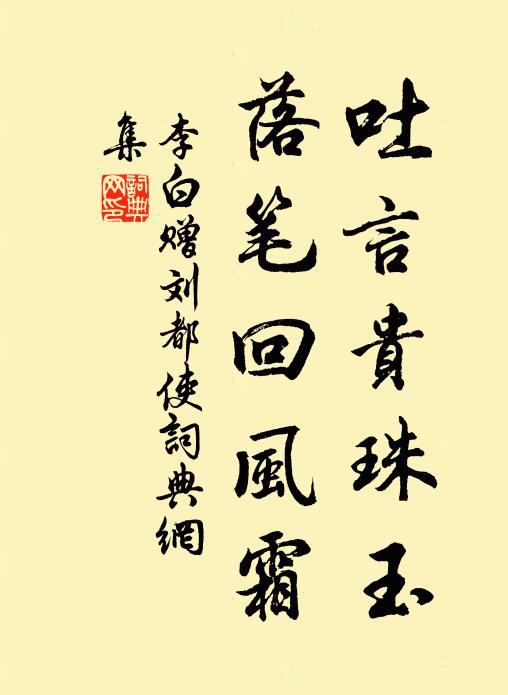 吐言貴珠玉
落笔回風霜
李白赠刘都使詞典網
集
詞典网印